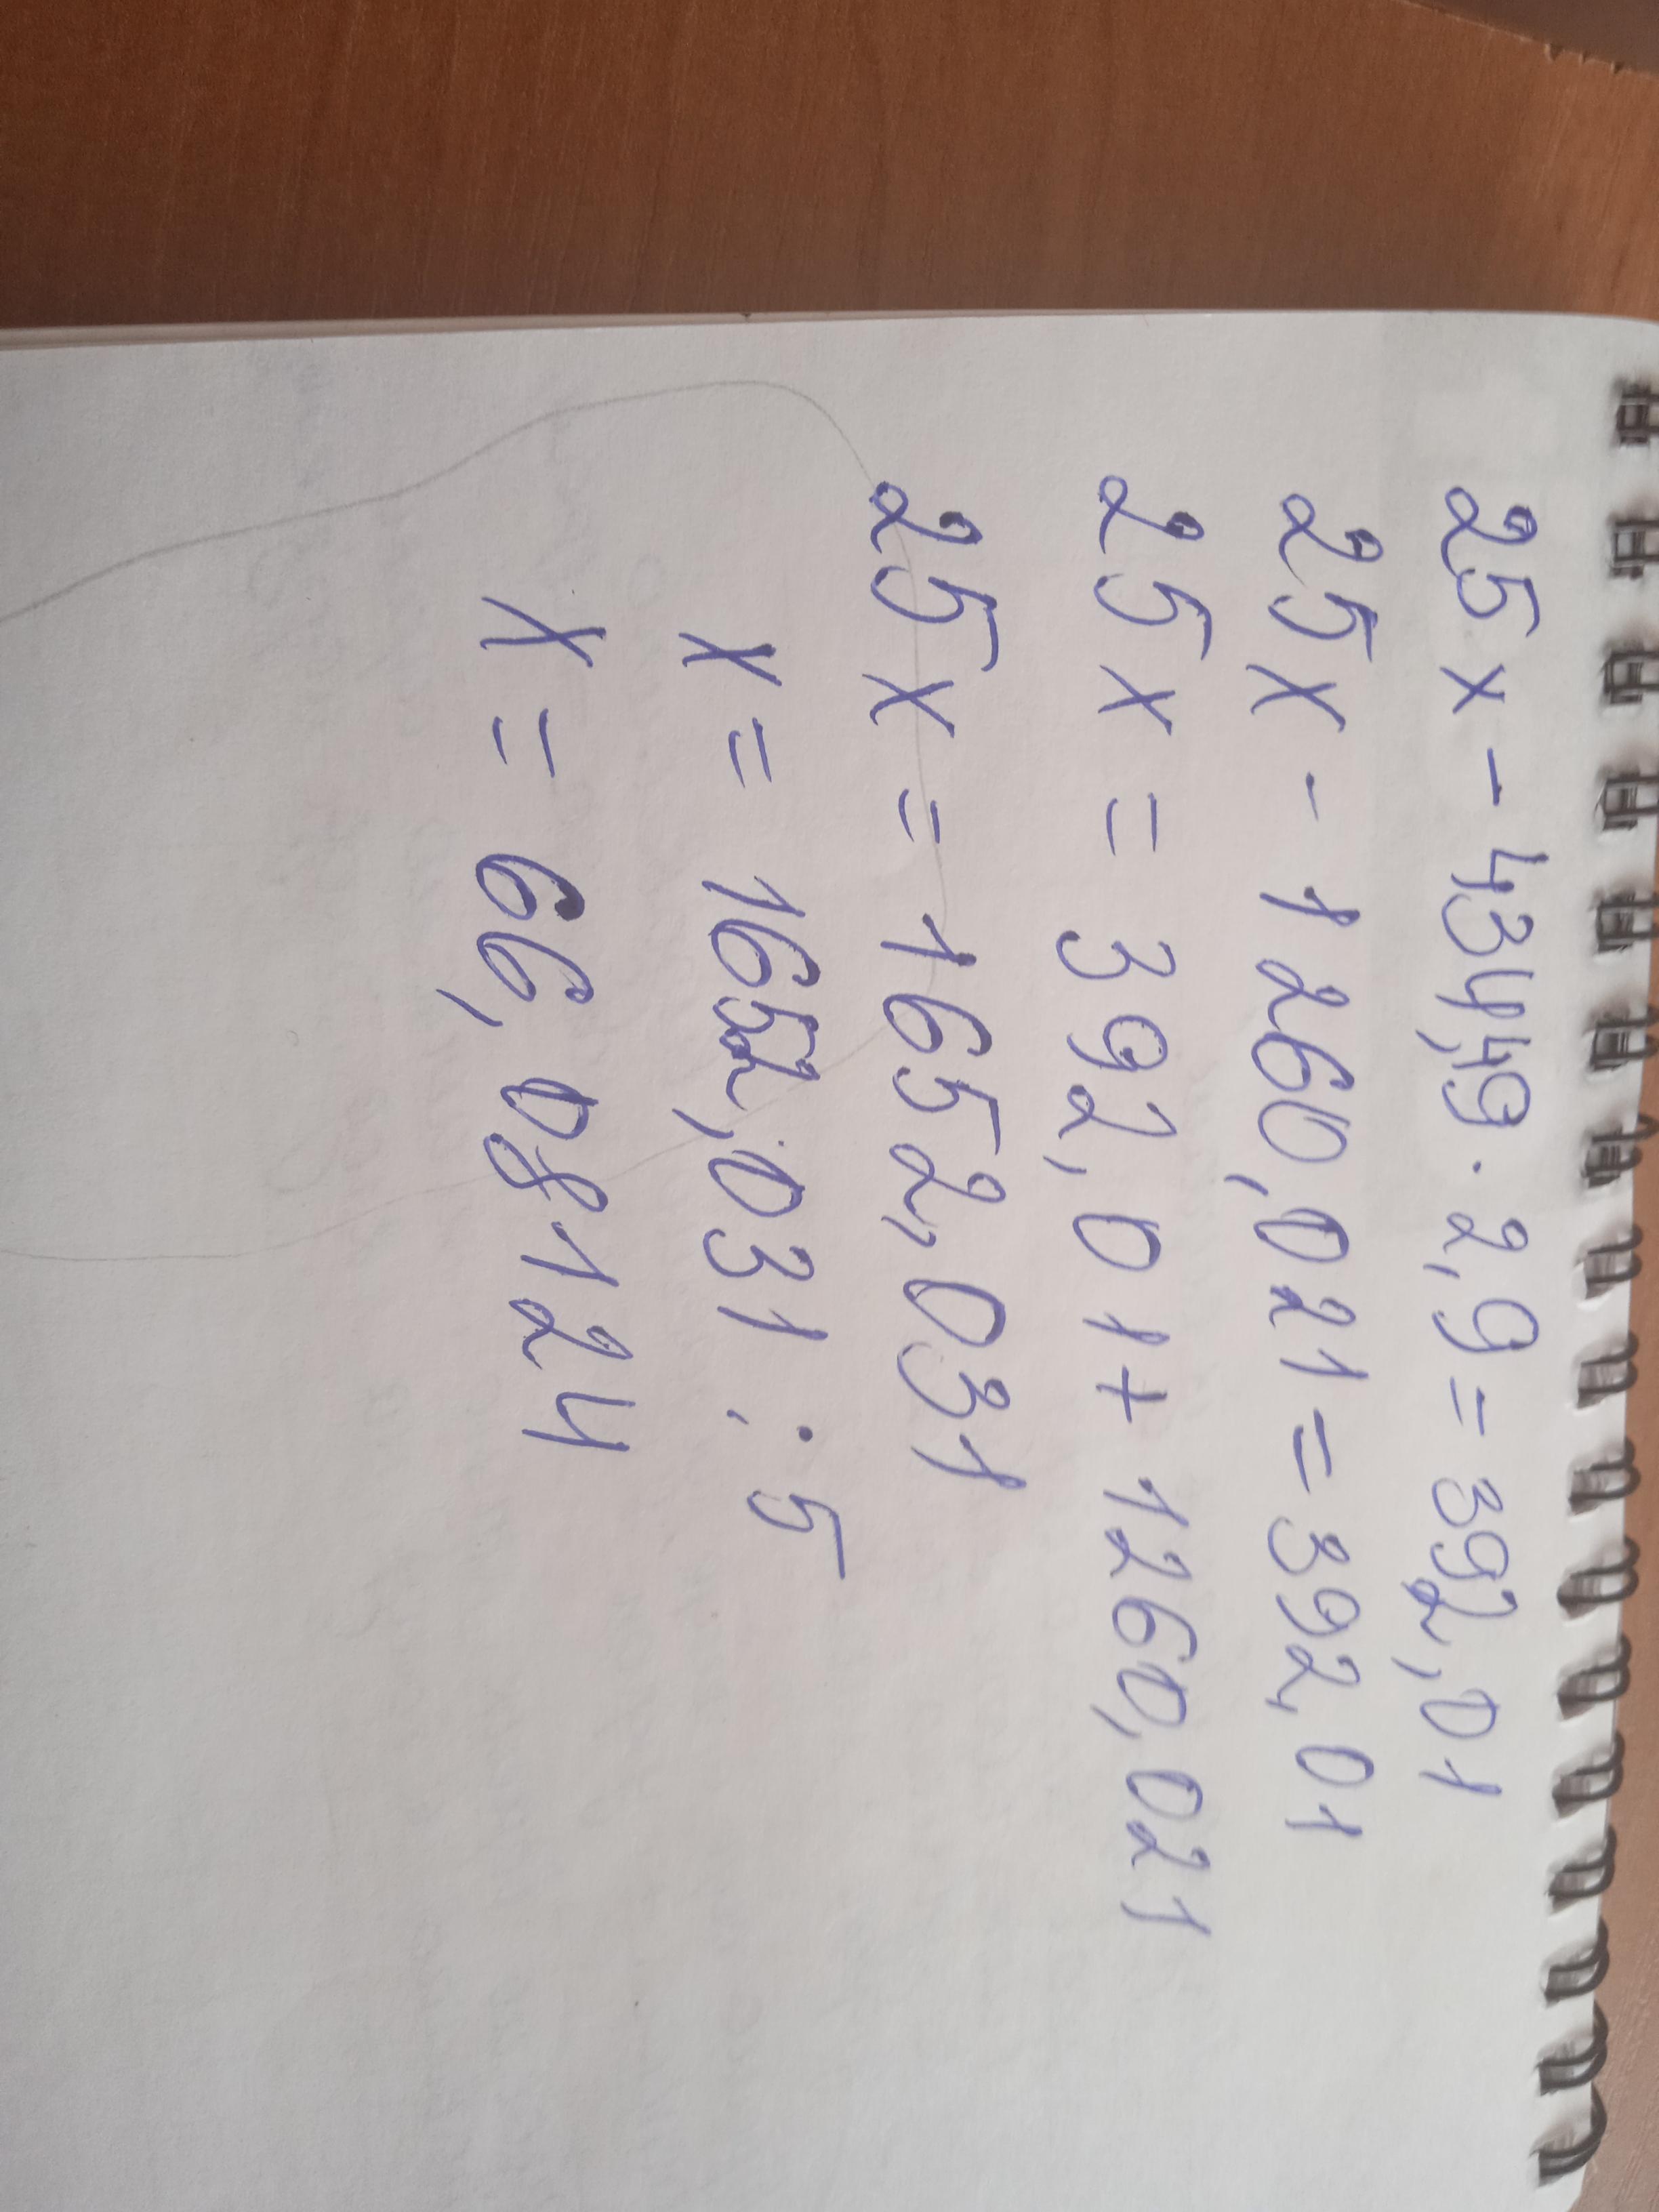 25x - 434,49 · 2,9 = 392,01
25x - 1260,021 = 392,01
25x = 392,01 + 1260,021
25x = 1652,031
x = 1652,031 : 5
x = 66,08124